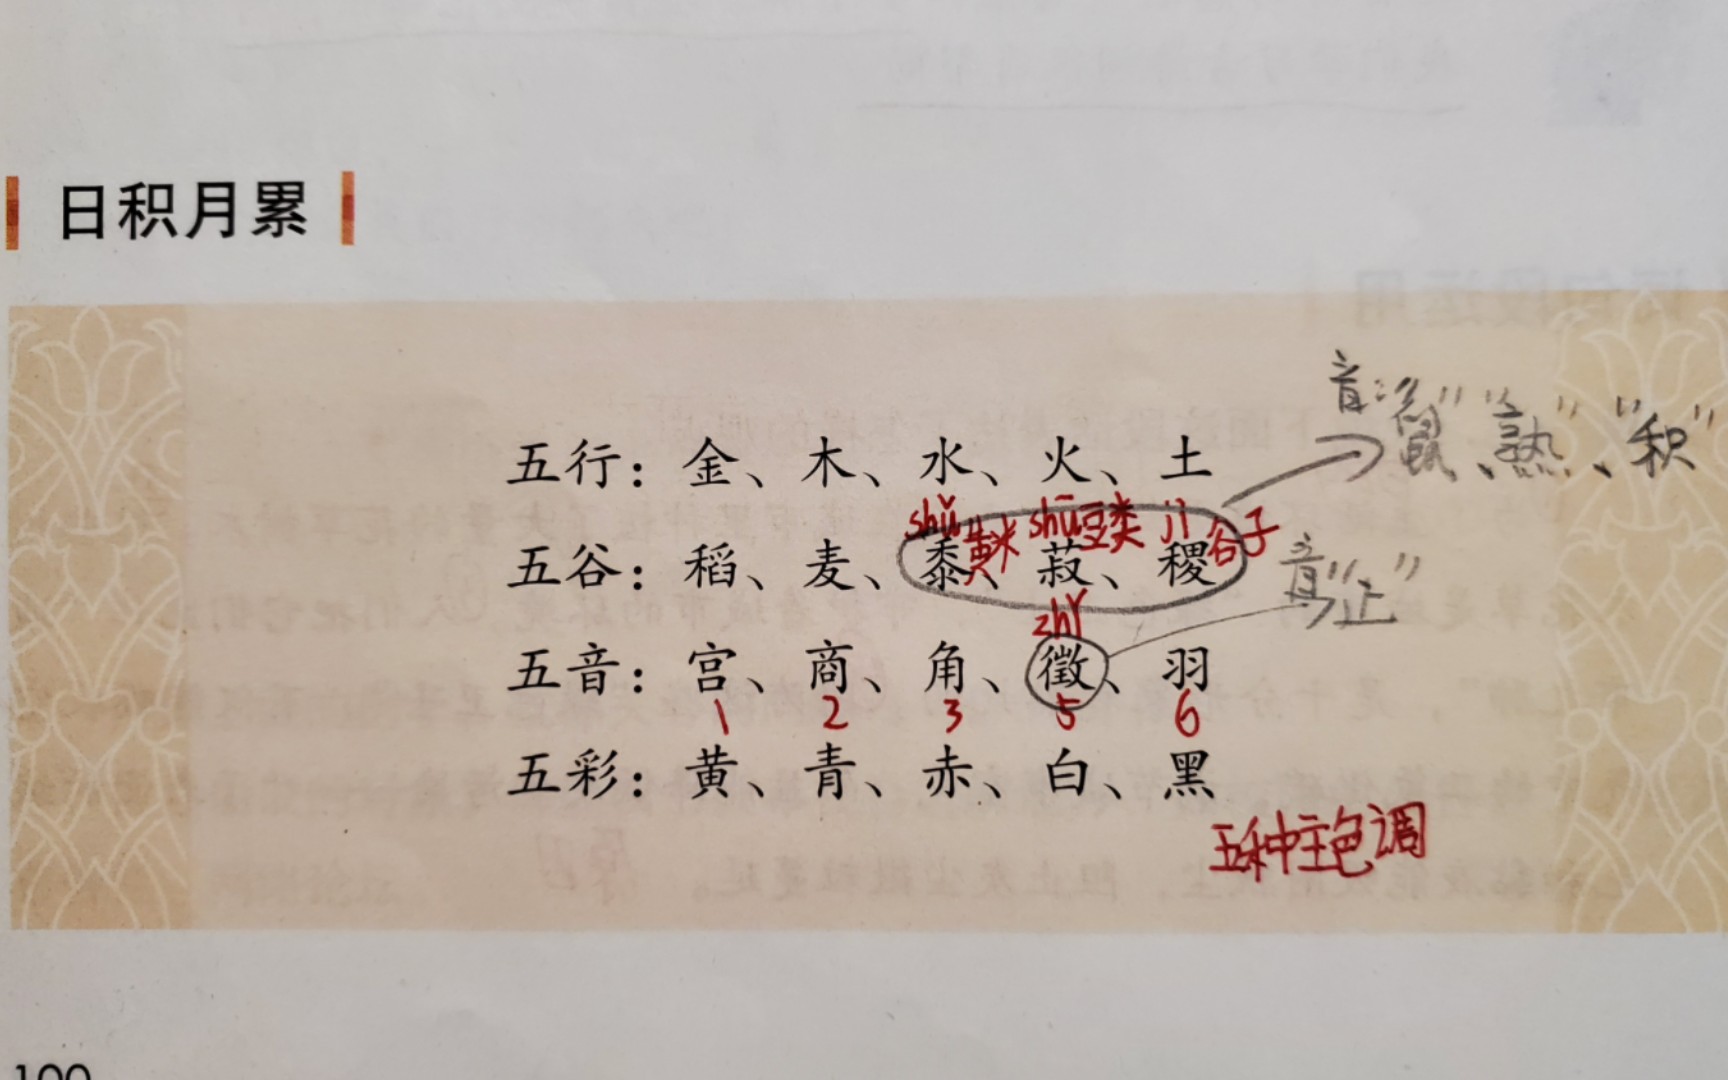 日积月累
五行：金、木、水、火、土
音："鼠"、"熟"、"积"
shǔ 黄米 shū 豆类 jì 谷子
五谷：稻、麦、黍、菽、稷
音"止"
zhǐ
五音：宫、商、角、徵、羽
1 2 3 5 6
五彩：黄、青、赤、白、黑
五种主色调
100